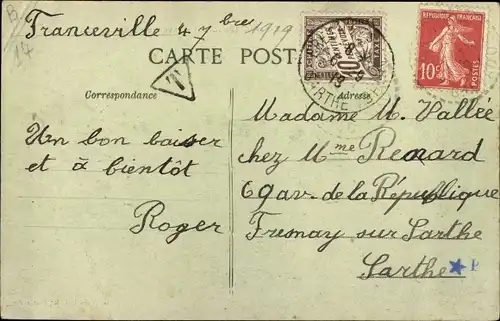 B
14
Franceville 4 7bre 1919
CARTE POSTALE
T
Correspondance
Adresse
RÉPUBLIQUE FRANÇAISE
10c
POSTES
10
SARTHE
Un bon baiser
et à bientôt
Roger
Madame M. Vallée
chez Mme Renard
69 av. de la République
Fresnay sur Sarthe
Sarthe
P